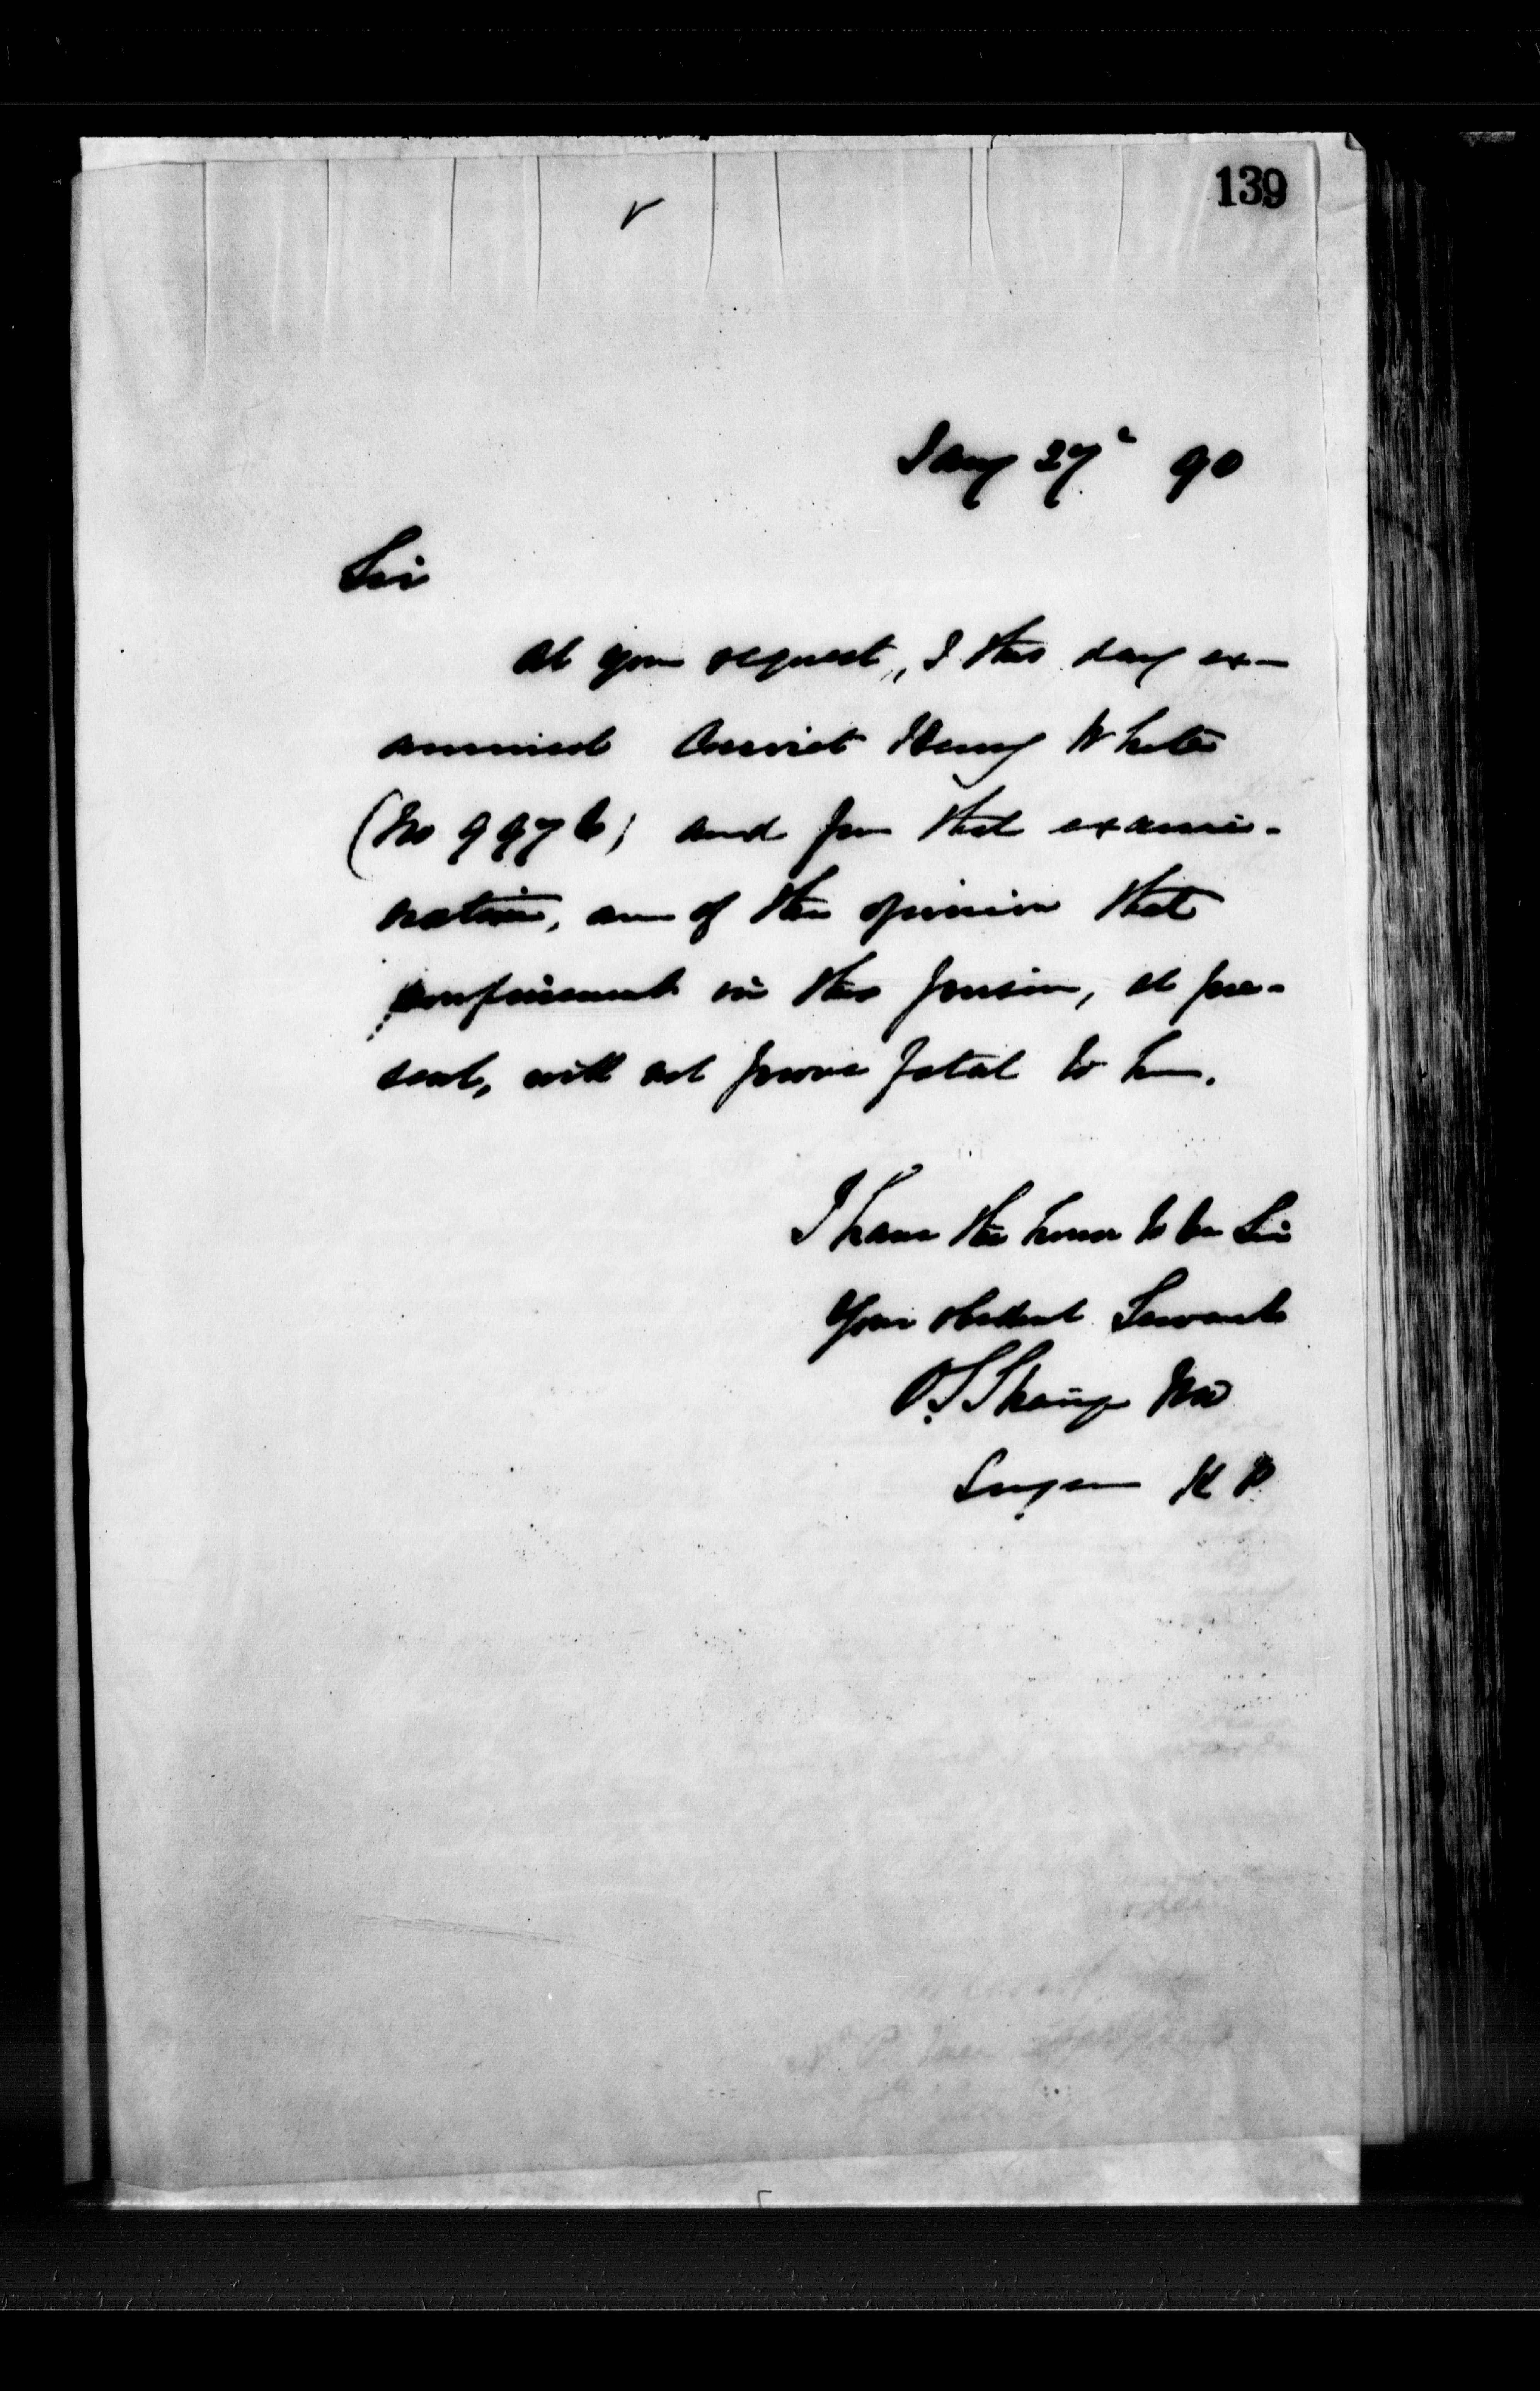 139
Jany 27th 90
Sir
At your request, I this day ex-
amined Convict Henry White
(No 9976) and from that exami-
nation, am of the opinion that
confinement in this prison, at pre-
sent, will not prove fatal to him.
I have the honor to be Sir
Your obedient Servant
O S Strange MD
Surgeon K P